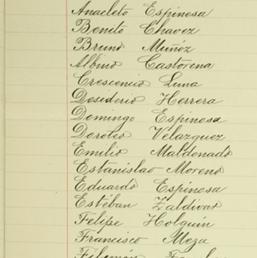 Anacleto Espinosa
Benito Chavez
Bruno Muñoz
Albino Castorena
Crescencio Luna
Desiderio Herrera
Domingo Espinosa
Doroteo Velazquez
Emilio Maldonado
Estanislao Moreno
Eduardo Espinosa
Estéban Zaldivar
Felipe Holguin
Francisco Meza
Filemón